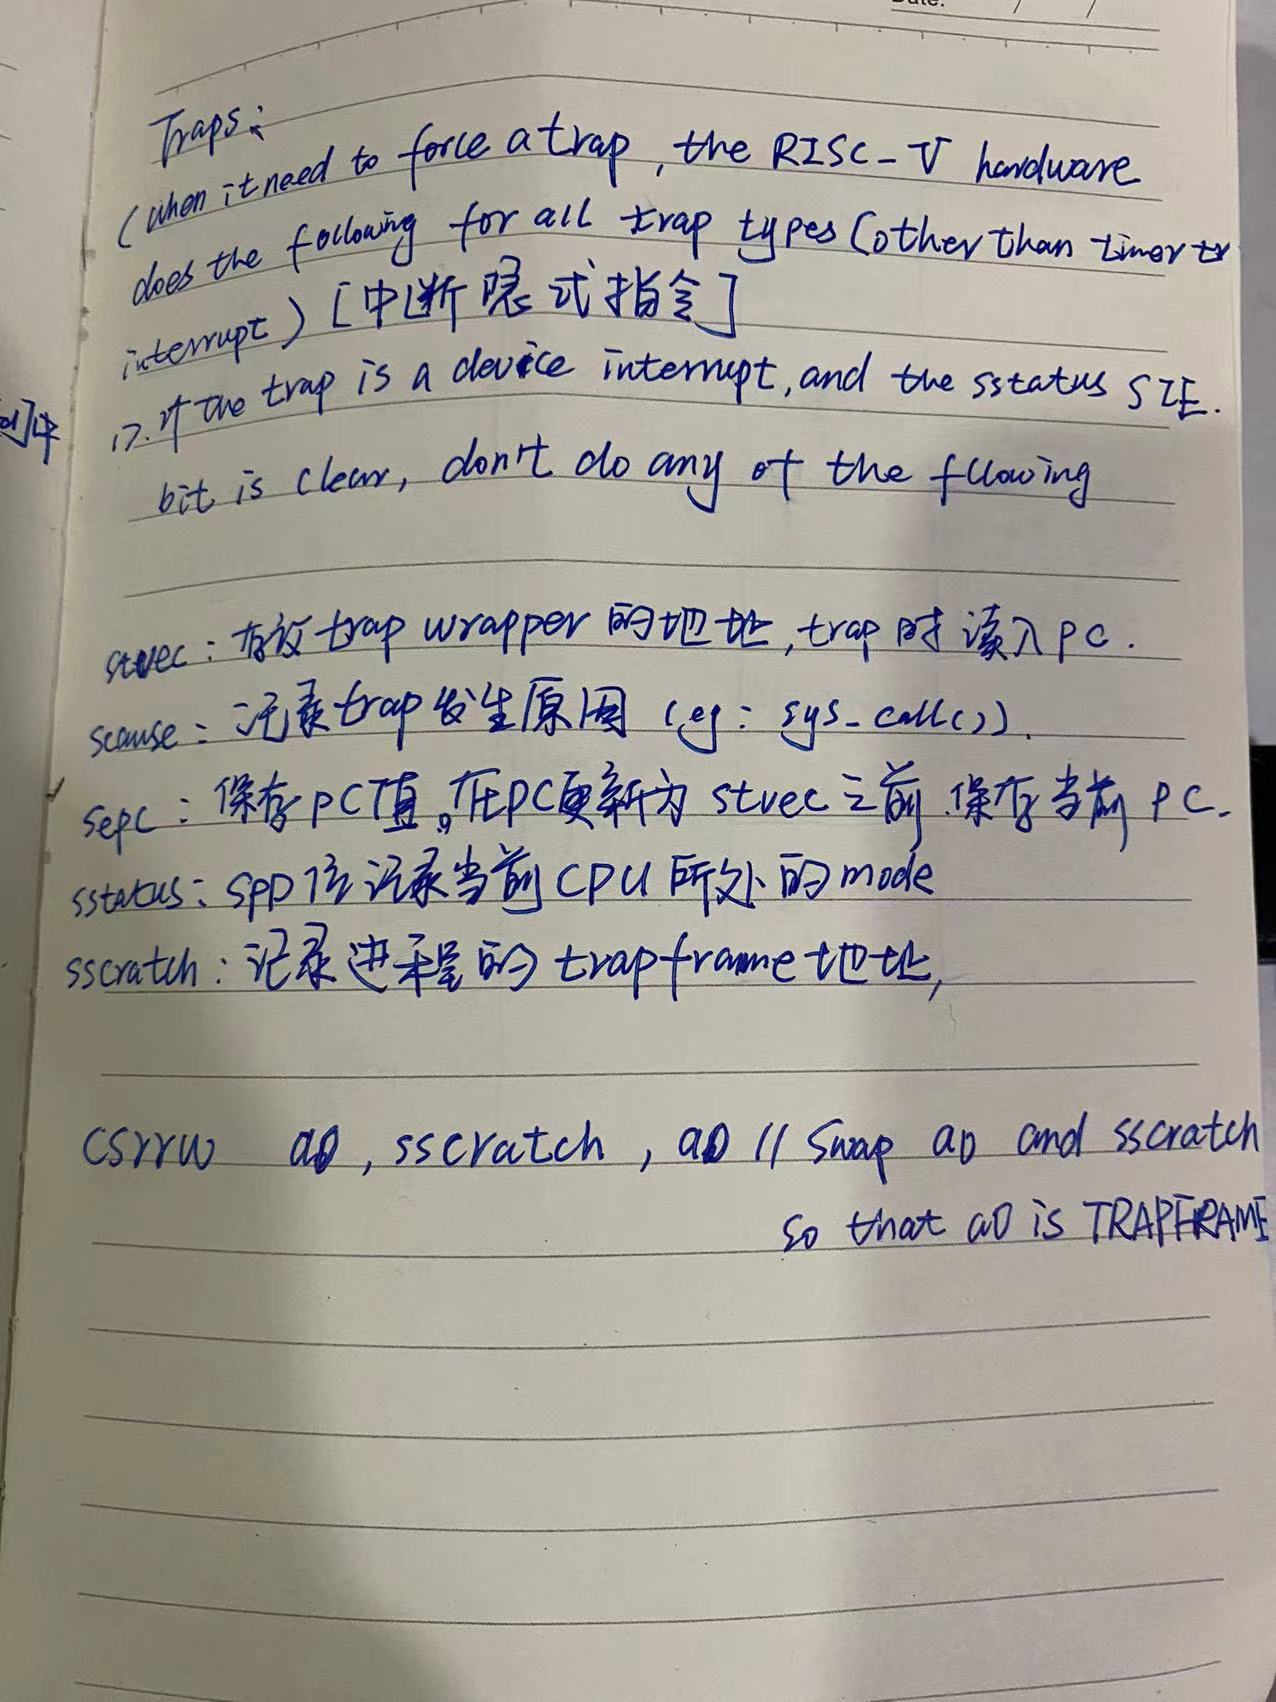 Date: / /
Traps:
(when it need to force a trap, the RISC-V hardware
does the following for all trap types (other than timer tr
interrupt) [中断隐式指令]
1). if the trap is a device interrupt, and the sstatus SIE.
bit is clear, don't do any of the fllowing
stvec: 存放 trap wrapper 的地址, trap 时 读入 PC.
scause: 记录 trap 发生原因 (eg: sys_call()).
sepc: 保存 PC 值。在PC更新为 stvec 之前. 保存当前 PC.
sstatus: SPP 位 记录当前 CPU 所处的 mode
sscratch: 记录进程的 trapframe 地址,
csrrw a0, sscratch, a0 // Swap a0 and sscratch
so that a0 is TRAPFRAME